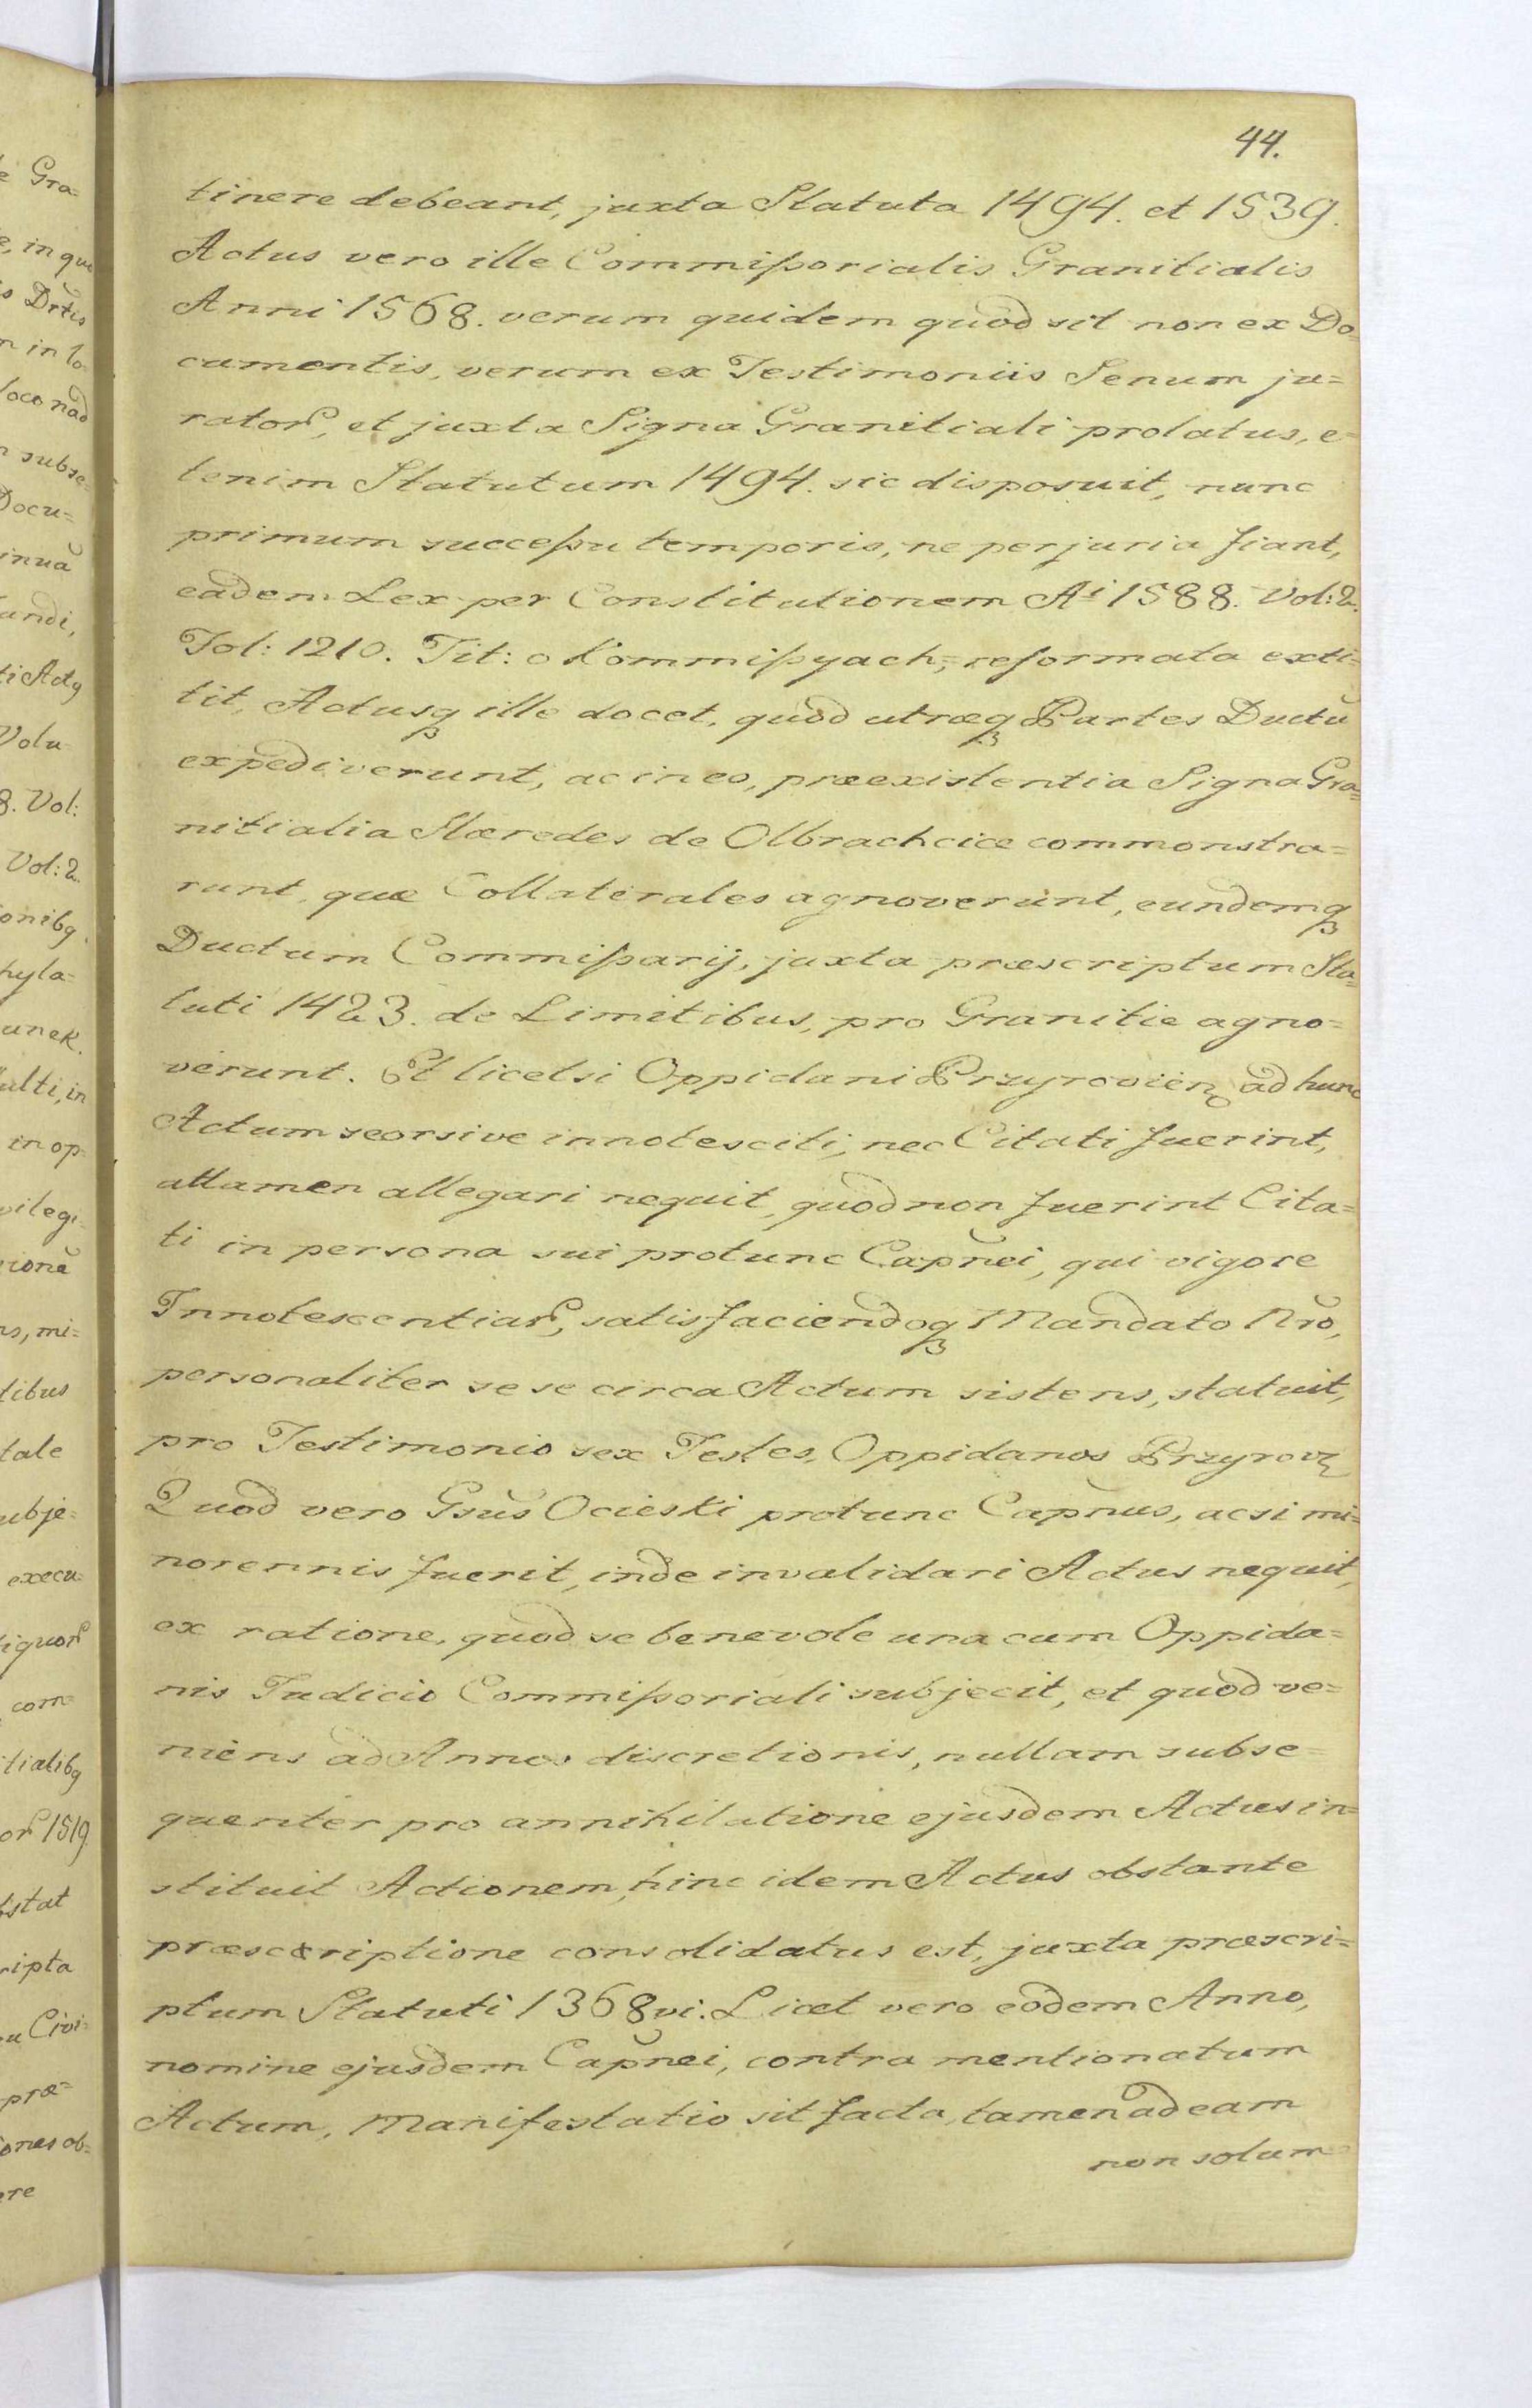 44.
tinere debeant, juxta Statuta 1494. et 1539.
Actus vero ille Commißorialis Granitialis
Anni 1568. verum quidem quod sit non ex Do=
cumentis, verum ex Testimoniis Senum ju=
rator̃, et juxta Signa Granitiali prolatus, e=
tenim Statutum 1494. sic disposuit, nunc
primum succeßu temporis, ne perjuria fiant,
eadem Lex per Constitutionem Aī 1588. Vol: 2.
Fol: 1210. Tit: o Kommißyach, reformata exti=
tit, Actusqꝫ ille docet, quod utræqꝫ Partes Ductū
expediverunt, ac in eo, præexistentia Signa Gra=
nitialia Hæredes de Olbrachcice commonstra=
runt, quæ Collaterales agnoverunt, eundemqꝫ
Ductum Commißarij, juxta præscriptum Sta=
tuti 1423. de Limitibus, pro Granitie agno=
verunt. Et licetsi Oppidani Przyrovien̄ ad hunc
Actum seorsive innotesciti, nec Citati fuerint,
attamen allegari nequit, quod non fuerint Cita=
ti in persona sui protunc Capn̄ei, qui vigore
Innotescentiar̃, satisfaciendoqꝫ Mandato Nr̄o,
personaliter sese circa Actum sistens, statuit,
pro Testimonio sex Testes, Oppidanos Przyrov̄
Quod vero Gsūs Ocieski protunc Capn̄us, acsi mi=
norennis fuerit, inde invalidari Actus nequit,
ex ratione, quod se benevole una cum Oppida=
nis Judicio Commißoriali subjecit, et quod ve=
niens ad Annos discretionis, nullam subse=
quenter pro annihilatione ejusdem Actus in=
stituit Actionem, hinc idem Actus obstante
præscriptione consolidatus est, juxta præscri=
ptum Statuti 1368vi. Licet vero eodem Anno,
nomine ejusdem Capn̄ei, contra mentionatum
Actum, Manifestatio sit facta, tamen ad eam
non solum